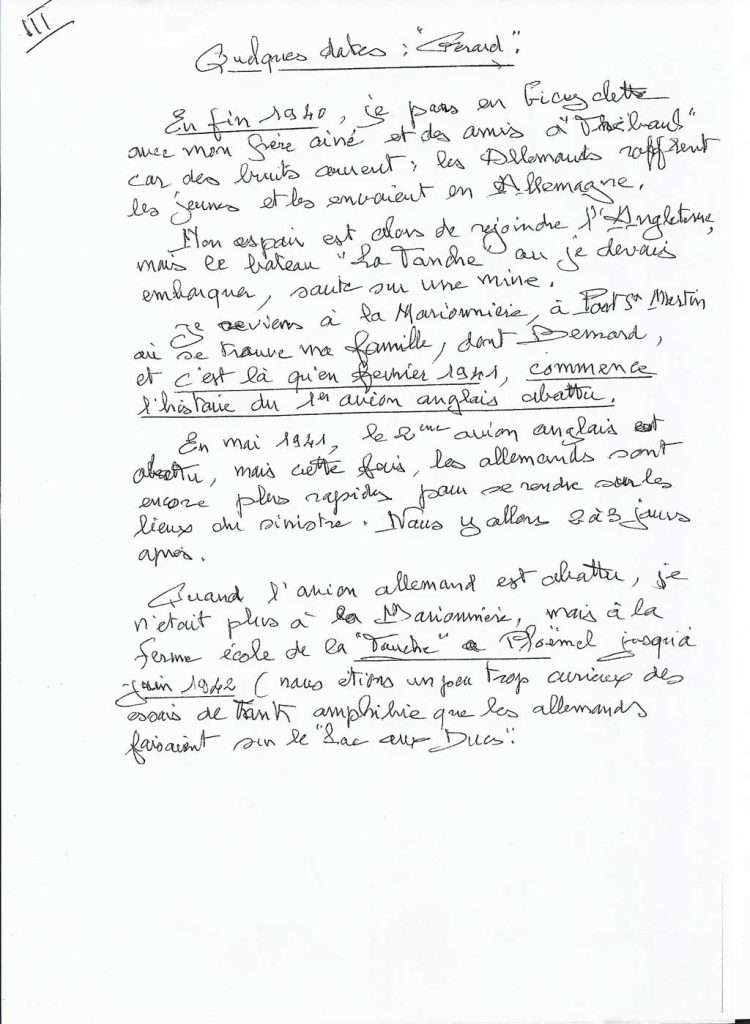 III
Quelques dates : "Gérard".
En fin 1940, je pars en bicyclette
avec mon frère ainé et des amis à
car des bruits courent ; les Allemands raflent
les jeunes et les envoient en Allemagne.
Mon espoir est alors de rejoindre l'Angleterre,
mais le bateau "La Tanche" où je devais
embarquer, saute sur une mine.
Je reviens à la Marionnière, à Pont St Martin
où se trouve ma famille, dont Bernard,
et c'est là qu'en février 1941, commence
l'histoire du 1er avion anglais abattu.
En mai 1941, le 2ème avion anglais est
abattu, mais cette fois, les allemands sont
encore plus rapides pour se rendre sur les
lieux du sinistre. Nous y allons 2 à 3 jours
après.
Quand l'avion allemand est abattu, je
n'était plus à la Marionnière, mais à la
ferme école de la "Touche" à Ploërmel jusqu'à
juin 1942 (nous étions un peu trop curieux des
essais de tank amphibie que les allemands
faisaient sur le "Lac aux Ducs".